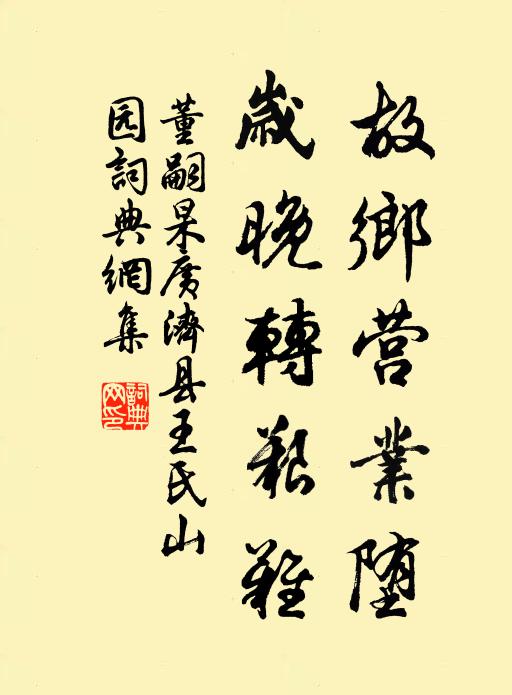 故鄉营業堕
歲晚轉艱難
董嗣杲廣濟县王氏山
园詞典網集
詞典
网印